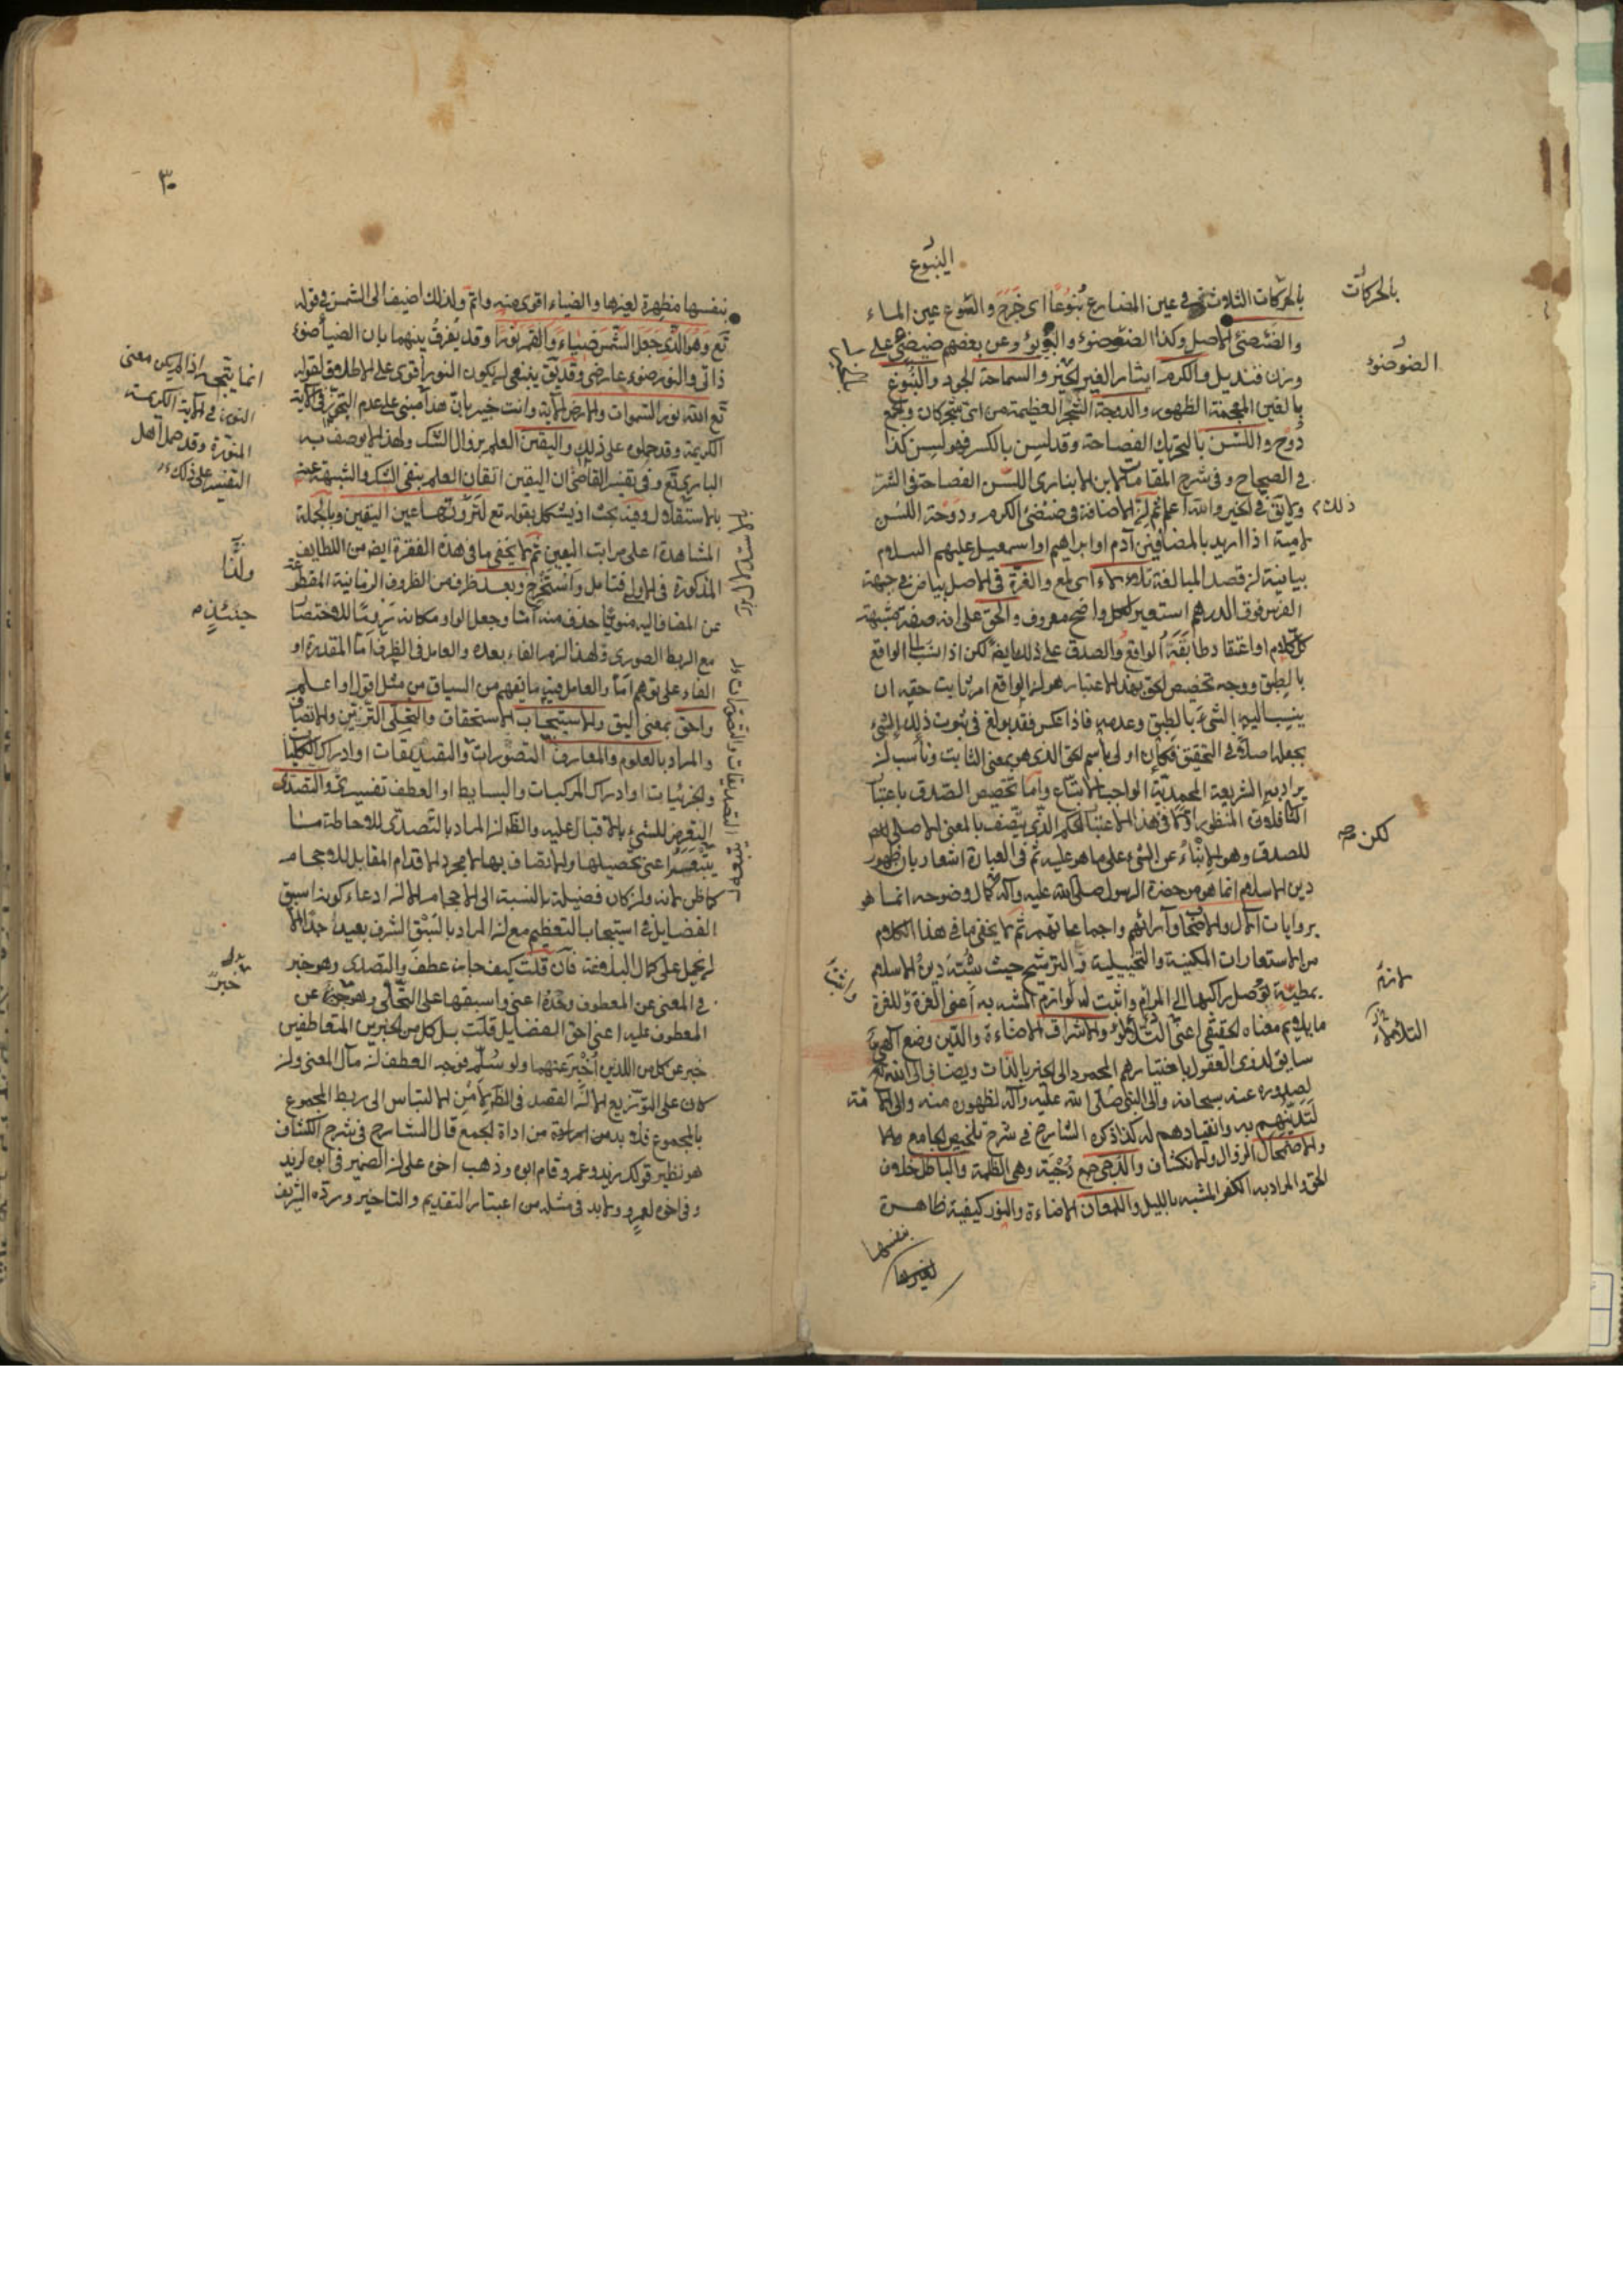 الينبوع
بالحركات الثلاث في عين المضارع نبوعا اى خرج والينبوع عين الماء
بالحركات
والضئضئ الاصل وكذا الضؤضؤ والبؤبؤ وعن بعضهم ضيضئ على
الضوضؤ
وزن قنديل والكرم ايثار الغير بالخير والسماحة الجود والنبوغ
بالغين المعجمة الظهور والدوحة الشجر العظيمة من اى شجر كان والجمع
دوح واللسن بالتحريك الفصاحة وقد لسن بالكسر فهو لسن كذا
في الصحاح وفي شرح المقامات لابن الانبارى اللسن الفصاحة في الشر
ولا يق في الخير والله اعلم ثم ان الاضافة في ضئضئ الكرم ودوحة اللسن
ذلك
لامية اذا اريد بالمضافين آدم او ابراهيم او اسمعيل عليهم السلام
بيانية ان قصد المبالغة تلألأ اى لمع والغرة في الاصل بياض في جبهة
الفرس فوق الدرهم استعير لكل واضح معروف والحق على انه صفة مشبهة
كل كلام او اعتقاد طابقه الواقع والصدق على ذلك ايض لكن اذا نسبا الى الواقع
بالطبق ووجه تخصيص الحق بهذا الاعتبار هو ان الواقع امر ثابت حقه ان
ينسب اليه الشئ بالطبق وعدمه فاذا عكس فقد بولغ في ثبوت ذلك الشئ
بجعله اصلا في التحقيق فكان اولى باسم الحق الذي هو بمعنى الثابت وناسب ان
يراد به الشريعة المحمدية الواجب الاتباع واما تخصيص الصدق باعتبا
المنظور اولا في هذا الاعتبار الحكم الذي يتصف بالمعنى الاصلى
لكن
للصدق وهو الانباء عن الشئ على ما هو عليه ثم في العبارة اشعار بان ظهور
دين الاسلام انما هو من حضرة الرسول صلى الله عليه وآله كمال وضوحه انما هو
بروايات الآل والاصحاب وآرائهم واجماعاتهم ثم لا يخفى ما في هذا الكلام
من الاستعارات المكنية والتخييلية والترشيح حيث شبه دين الاسلام
بمطية توصل راكبها الى المرام واثبت له لوازم المشبه به اعنى الغرة وللغرة
لازم
ما يلايم معناه الحقيقي اعنى التلألؤ والاشراق الاضاءة والدين وضع آلهى
التلألؤ
سايق لذوى العقول باختيارهم المحمود الى الخير بالذات ويضاف الى الله تع
لصدوره عنه سبحانه والى النبي صلى الله عليه وآله لظهوره منه والى الامة
لتدينهم به وانقيادهم له كذا ذكره الشارح في شرح تلخيص الجامع
والاضمحلال الزوال والانكشاف والدجى جمع دجية وهى الظلمة والباطل خلاف
الحق والمراد به الكفر المشبه بالليل واللمعان الاضاءة والنور كيفية ظاهرة
بنفسها
لغيرها
٣٠
بنفسها مظهرة لغيرها والضياء اقوى منه واتم ولذلك اضيف الى الشمس في قوله
تع وهو الذي جعل الشمس ضياء والقمر نورا وقد يفرق بينهما بان الضياء ضوء
ذاتى والنور ضوء عارضى وقد يق ينبغى ان يكون النور اقوى على الاطلاق لقوله
تع الله نور السموات والارض الآية وانت خبير بان هذا مبنى على عدم التجوز في الآية
انما يتجه اذا لم يكن معنى
النور في الآية الكريمة
المنور وقد حمل اهل
التفسير على ذلك
الكريمة وقد حملوه على ذلك واليقين العلم بزوال الشك ولهذا لا يوصف به
البارى تع وفي تفسير القاضى ان اليقين اتقان العلم بنفى الشك والشبهة عنه
بالاستدلال وفيه بحث اذ يشكل بقوله تع لترونها عين اليقين وبالجملة
المشاهدة اعلى مراتب اليقين ثم لا يخفى ما في هذه الفقرة ايض من اللطايف
المذكورة في الاولى فتامل واستخرج وبعد ظرف من الظروف الزمانية المقطوعة
ولنا
عن المضاف اليه منويا حذف منه اما وجعل الواو مكانه لزوما للاختصا
حينئذ
مع الربط الصورى ولهذا لزم الفاء بعده والعامل في الظرف اما المقدرة او
الفاء على توهم اما والعامل فيه ما يفهم من السياق من مثل اقول او اعلم
واحق بمعنى اليق والاستيجاب الاستحقاق والتحلى التزين والاتصاف
والمراد بالعلوم والمعارف التصورات والتصديقات او ادراك الكليا
والجزئيات او ادراك المركبات والبسايط او العطف تفسيرى والتصدى
التعرض للشئ بالاقبال عليه والظ ان المراد بالتصدى للاحاطة هنا
اعنى تحصيلها والاتصاف بها لا مجرد الاقدام المقابل للاحجام
كما ظن لانه وان كان فضيلة بالنسبة الى الاحجام الا ان ادعاء كونه اسبق
الفضايل في استيجاب التعظيم مع ان المراد بالسبق الشرف بعيد جدا الا
ان يحمل على كمال البلاغة فان قلت كيف جاز عطف والتصدى وهو خبر
في المعنى عن المعطوف وحده اعنى واسبقها على التحلى وهو خبر عن
المعطوف عليه اعنى احق الفضايل قلت بل كل من الخبرين المتعاطفين
خبر عن كل من اللذين اخبر عنهما ولو سلم فوجه العطف ان مآل المعنى وان
كان على التوزيع الا ان القصد في الظ لامن الالتباس الى ربط المجموع
بالمجموع فلا بد من اداة الجمع قال الشارح في شرح الكشاف
هو نظير قولك زيد وعمرو قام ابوه وذهب اخوه على ان الضمير في ابوه لزيد
وفي اخوه لعمرو ولا بد في مثله من اعتبار التقديم والتاخير ورده الشريف